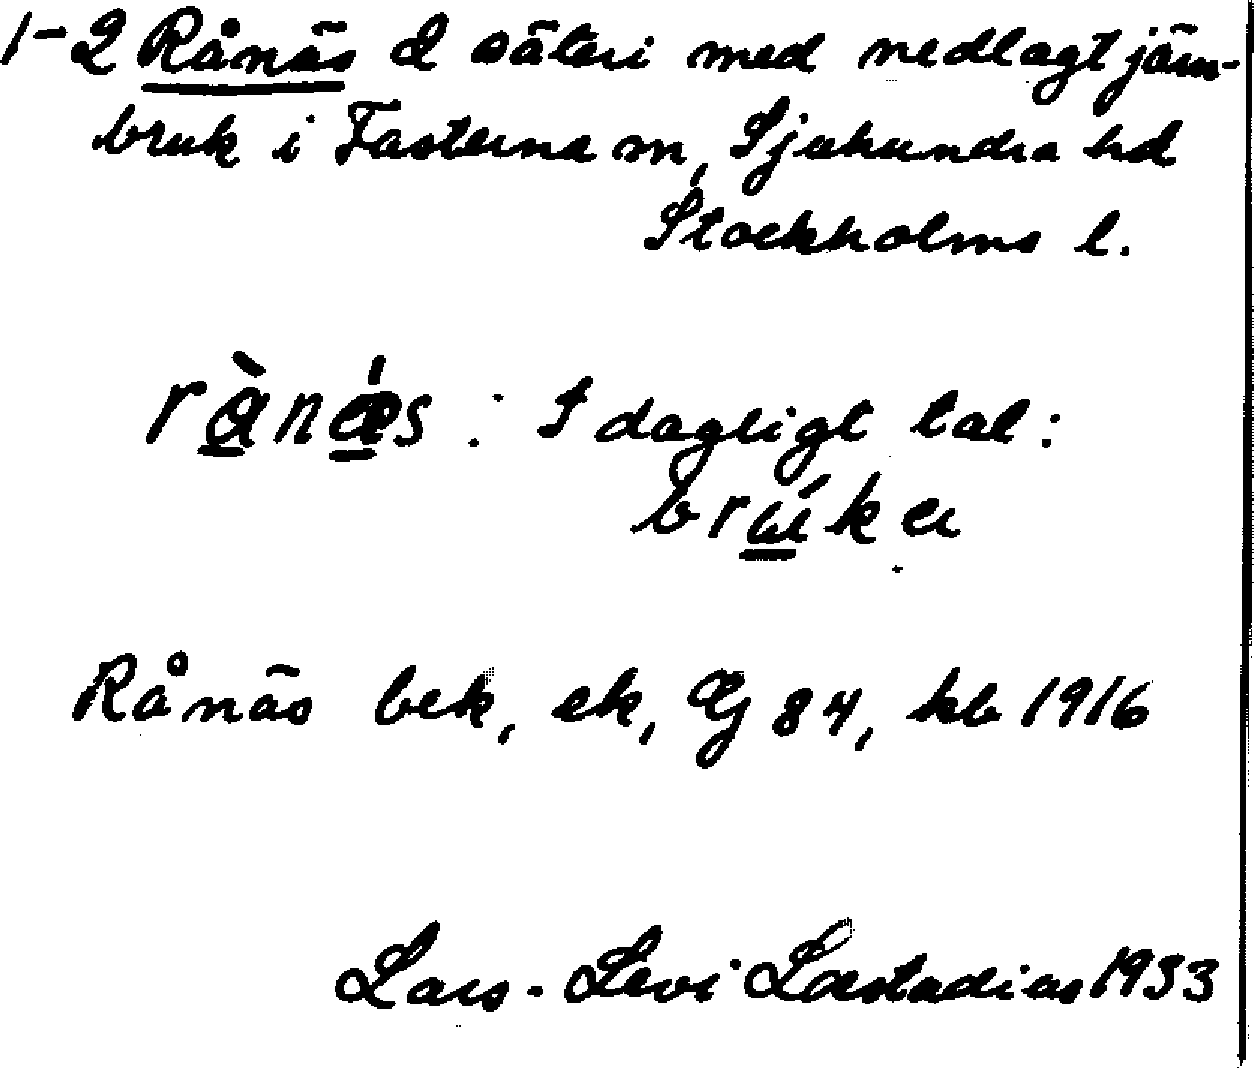 1-2 Rånäs d säteri med nedlagt järn-
bruk i Fasterna sn, Sjuhundra hd
Stockholms l.
rànǽs : I dagligt tal:
brúka
Rånäs bek, ek, Gj 84, kb 1916
Lars-Levi Læstadius 1933